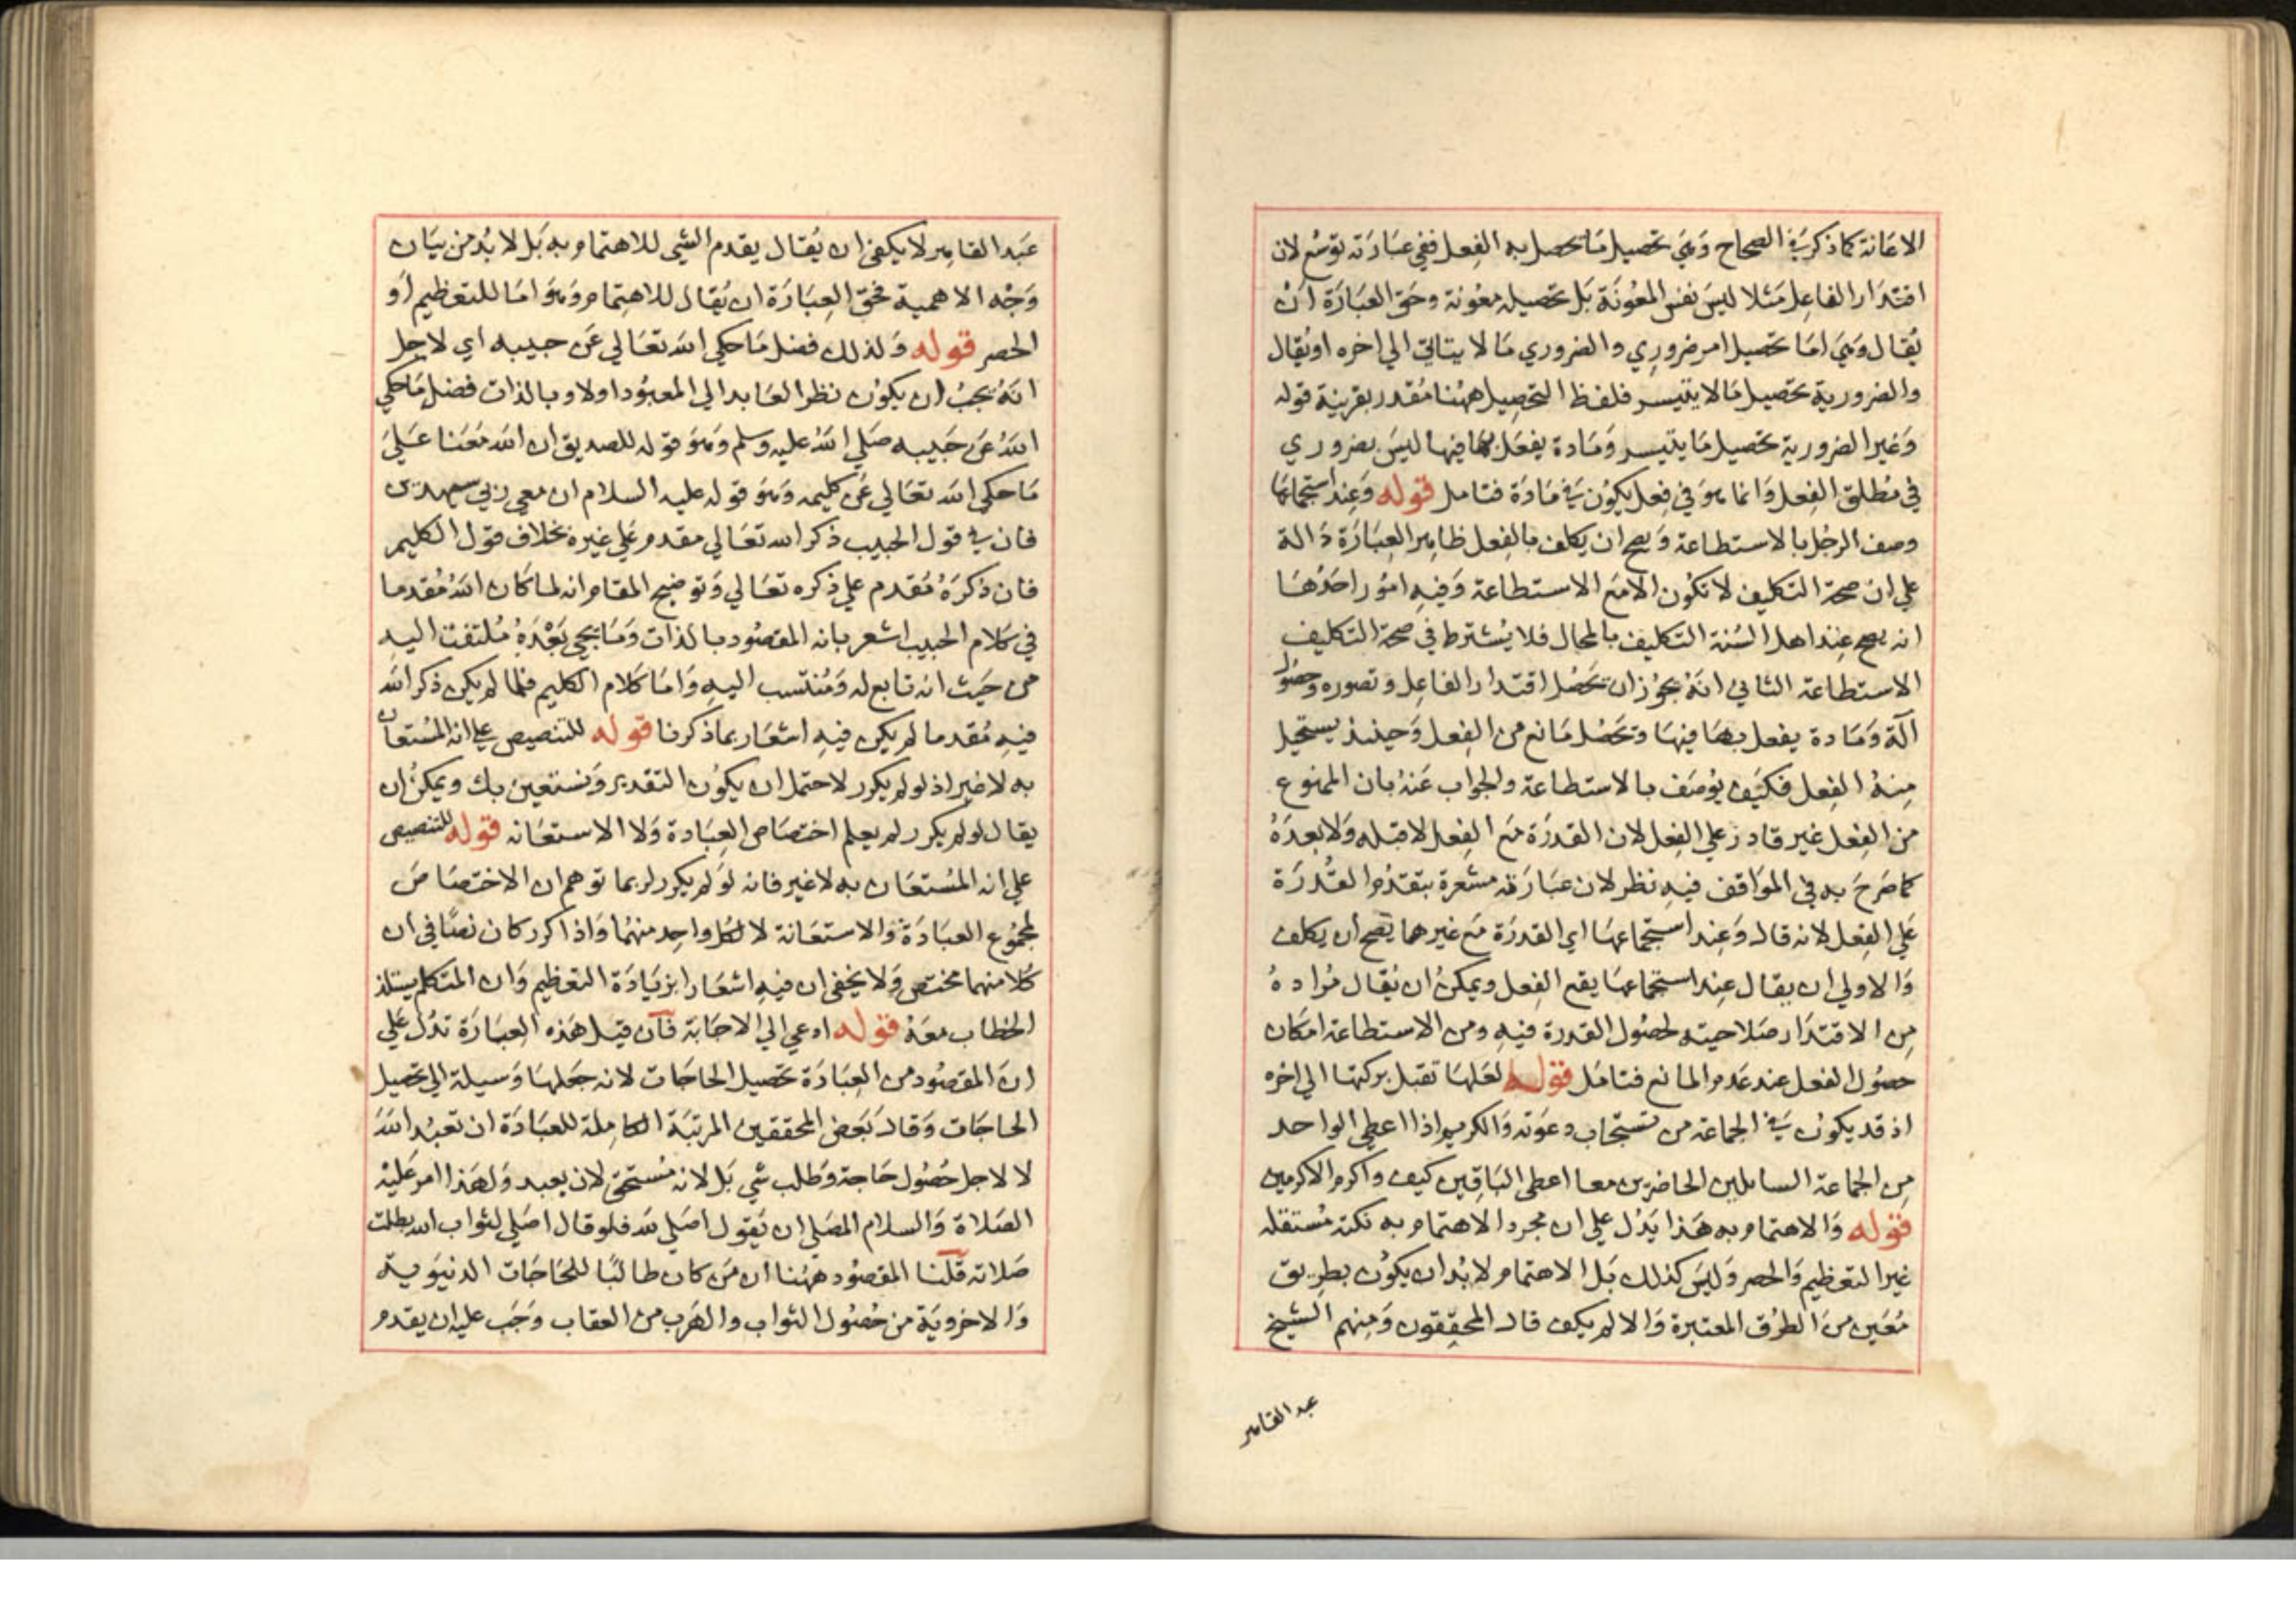 الاعانة كما ذكر في الصحاح وهي تحصيل ما تحصل به الفعل ففي عبارته توسع لان
اقتدار الفاعل مثلا ليس نفس المعونة بل تحصيله معونة وحق العبارة ان
يقال وهي اما تحصيل امر ضروري والضروري ما لا يتاتي الي اخره او يقال
والضرورية تحصيل ما لا يتيسر فلفظ التحصيل ههنا مقدر بقرينة قوله
وغير الضرورية تحصيل ما يتيسر ومادة يفعل بها فيها ليس بضروري
في مطلق الفعل وانما هو في فعل يكون في مادة فتامل قوله وعند استجماعها
وصف الرجل بالاستطاعة ويصح ان يكلف بالفعل ظاهر العبارة دالة
علي ان صحة التكليف لا تكون الا مع الاستطاعة وفيه امور احدها
انه يصح عند اهل السنة التكليف بالمحال فلا يشترط في صحة التكليف
الاستطاعة الثاني انه يجوز ان تحصل اقتدار الفاعل وتصوره وحصول
آلة ومادة يفعل بها فيها وتحصل مانع من الفعل وحينئذ يستحيل
منه الفعل فكيف يوصف بالاستطاعة والجواب عنه بان الممنوع
من الفعل غير قادر علي الفعل لان القدرة مع الفعل لا قبله ولا بعده
كما صرح به في المواقف فيه نظر لان عبارته مشعرة بتقدم القدرة
علي الفعل لانه قال وعند استجماعها اي القدرة مع غيرها يصح ان يكلف
والاولي ان يقال عند استجماعها يقع الفعل ويمكن ان يقال مراده
من الاقتدار صلاحيته لحصول القدرة فيه ومن الاستطاعة امكان
حصول الفعل عند عدم المانع فتامل قوله لعلها تقبل ببركتها الي اخره
اذ قد يكون في الجماعة من تستجاب دعوته والكريم اذا اعطي الواحد
من الجماعة السايلين الحاضرين معا اعطي الباقين كيف واكرم الاكرمين
قوله والاهتمام به هذا يدل علي ان مجرد الاهتمام به نكتة مستقلة
غير التعظيم والحصر وليس كذلك بل الاهتمام لا بد ان يكون بطريق
معين من الطرق المعتبرة والا لم يكف قال المحققون ومنهم الشيخ
عبد القاهر
عبد القاهر لا يكفي ان يقال يقدم الشي للاهتمام به بل لا بد من بيان
وجه الاهمية فحق العبارة ان يقال للاهتمام وهو اما للتعظيم او
الحصر قوله ولذلك فضل ما حكي الله تعالي عن حبيبه اي لاجل
انه يجب ان يكون نظر العابد الي المعبود اولا وبالذات فضل ما حكي
الله عن حبيبه صلي الله عليه وسلم وهو قوله للصديق ان الله معنا علي
ما حكي الله تعالي عن كليمه وهو قوله عليه السلام ان معي ربي سيهدين
فان في قول الحبيب ذكر الله تعالي مقدم علي غيره بخلاف قول الكليم
فان ذكره مقدم علي ذكره تعالي وتوضيح المقام انه لما كان الله مقدما
في كلام الحبيب اشعر بانه المقصود بالذات وما يجي بعده ملتفت اليه
من حيث انه تابع له ومنتسب اليه واما كلام الكليم فلما لم يكن ذكر الله
فيه مقدما لم يكن فيه اشعار بما ذكرنا قوله للتنصيص علي انه المستعان
به لا غير اذ لو لم يكرر لاحتمل ان يكون التقدير ونستعين بك ويمكن ان
يقال لو لم يكرر لم يعلم اختصاص العبادة ولا الاستعانه قوله للتنصيص
علي انه المستعان به لا غير فانه لو لم يكرر لربما توهم ان الاختصاص
لمجموع العبادة والاستعانة لا لكل واحد منهما واذا كرر كان نصا في ان
كلا منهما مختص ولا يخفي ان فيه اشعارا بزيادة التعظيم وان المتكلم يستلذ
الخطاب معه قوله ادعي الي الاجابة فآن قيل هذه العبارة تدل علي
ان المقصود من العبادة تحصيل الحاجات لانه جعلها وسيلة الي تحصيل
الحاجات وقال بعض المحققين المرتبة الكاملة للعبادة ان تعبد الله
لا لاجل حصول حاجة وطلب شي بل لانه مستحق لان يعبد ولهذا امر عليه
الصلاة والسلام المصلي ان يقول اصلي لله فلو قال اصلي لثواب الله بطلت
صلاته قلنا المقصود ههنا ان من كان طالبا للحاجات الدنيوية
والاخروية من حصول الثواب والهرب من العقاب وجب عليه ان يقدم